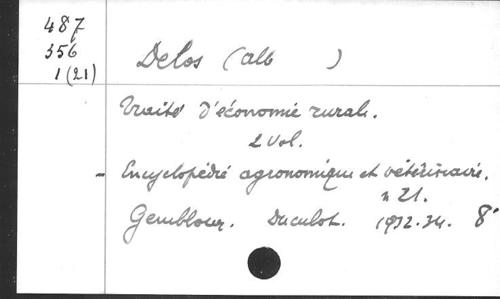 487
356
1(21)
Delos (alb )
Traité d'économie rurale.
2 Vol.
- Encyclopédie agronomique et vétérinaire.
n 21.
Gembloux. Duculot. 1932.34. 8°